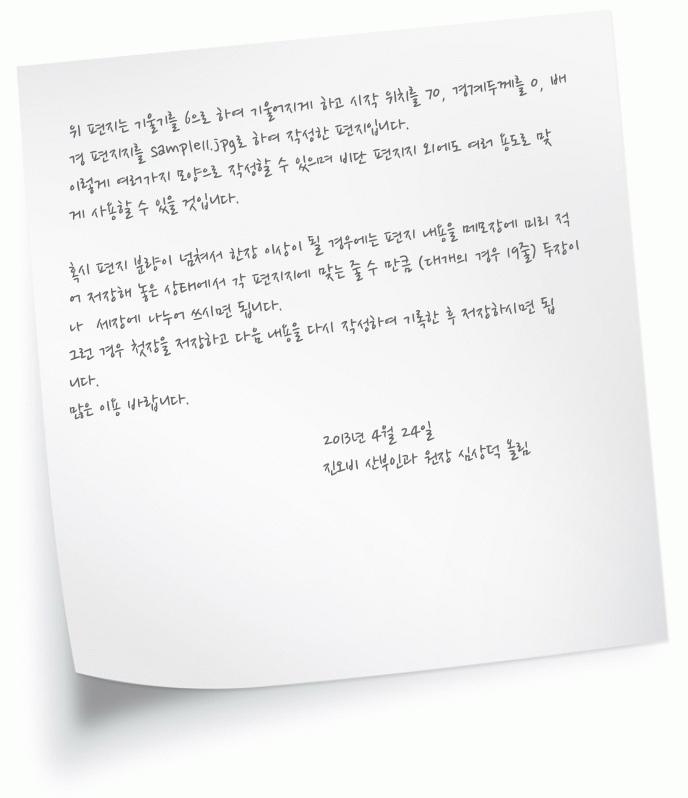 위 편지는 기울기를 6으로 하여 기울어지게 하고 시작 위치를 70, 경계두께를 0, 배
경 편지지를 sample11.jpg로 하여 작성한 편지입니다.
이렇게 여러가지 모양으로 작성할 수 있으며 비단 편지지 외에도 여러 용도로 맞
게 사용할 수 있을 것입니다.
혹시 편지 분량이 넘쳐서 한장 이상이 될 경우에는 편지 내용을 메모장에 미리 적
어 저장해 놓은 상태에서 각 편지지에 맞는 줄 수 만큼 (대개의 경우 19줄) 두장이
나 세장에 나누어 쓰시면 됩니다.
그런 경우 첫장을 저장하고 다음 내용을 다시 작성하여 기록한 후 저장하시면 됩
니다.
많은 이용 바랍니다.
2013년 4월 24일
진오비 산부인과 원장 심상덕 올림